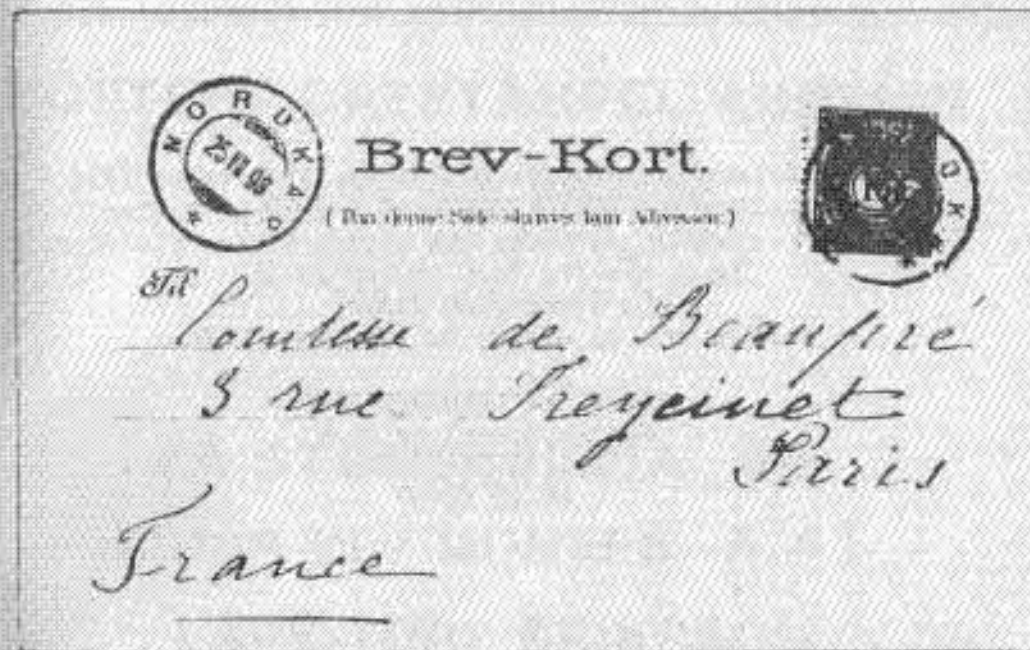 NORDKAP
Brev-Kort.
(Paa denne Side skrives kun Adressen.)
Til Comtesse de Beaupré
3 rue Freycinet
Paris
France